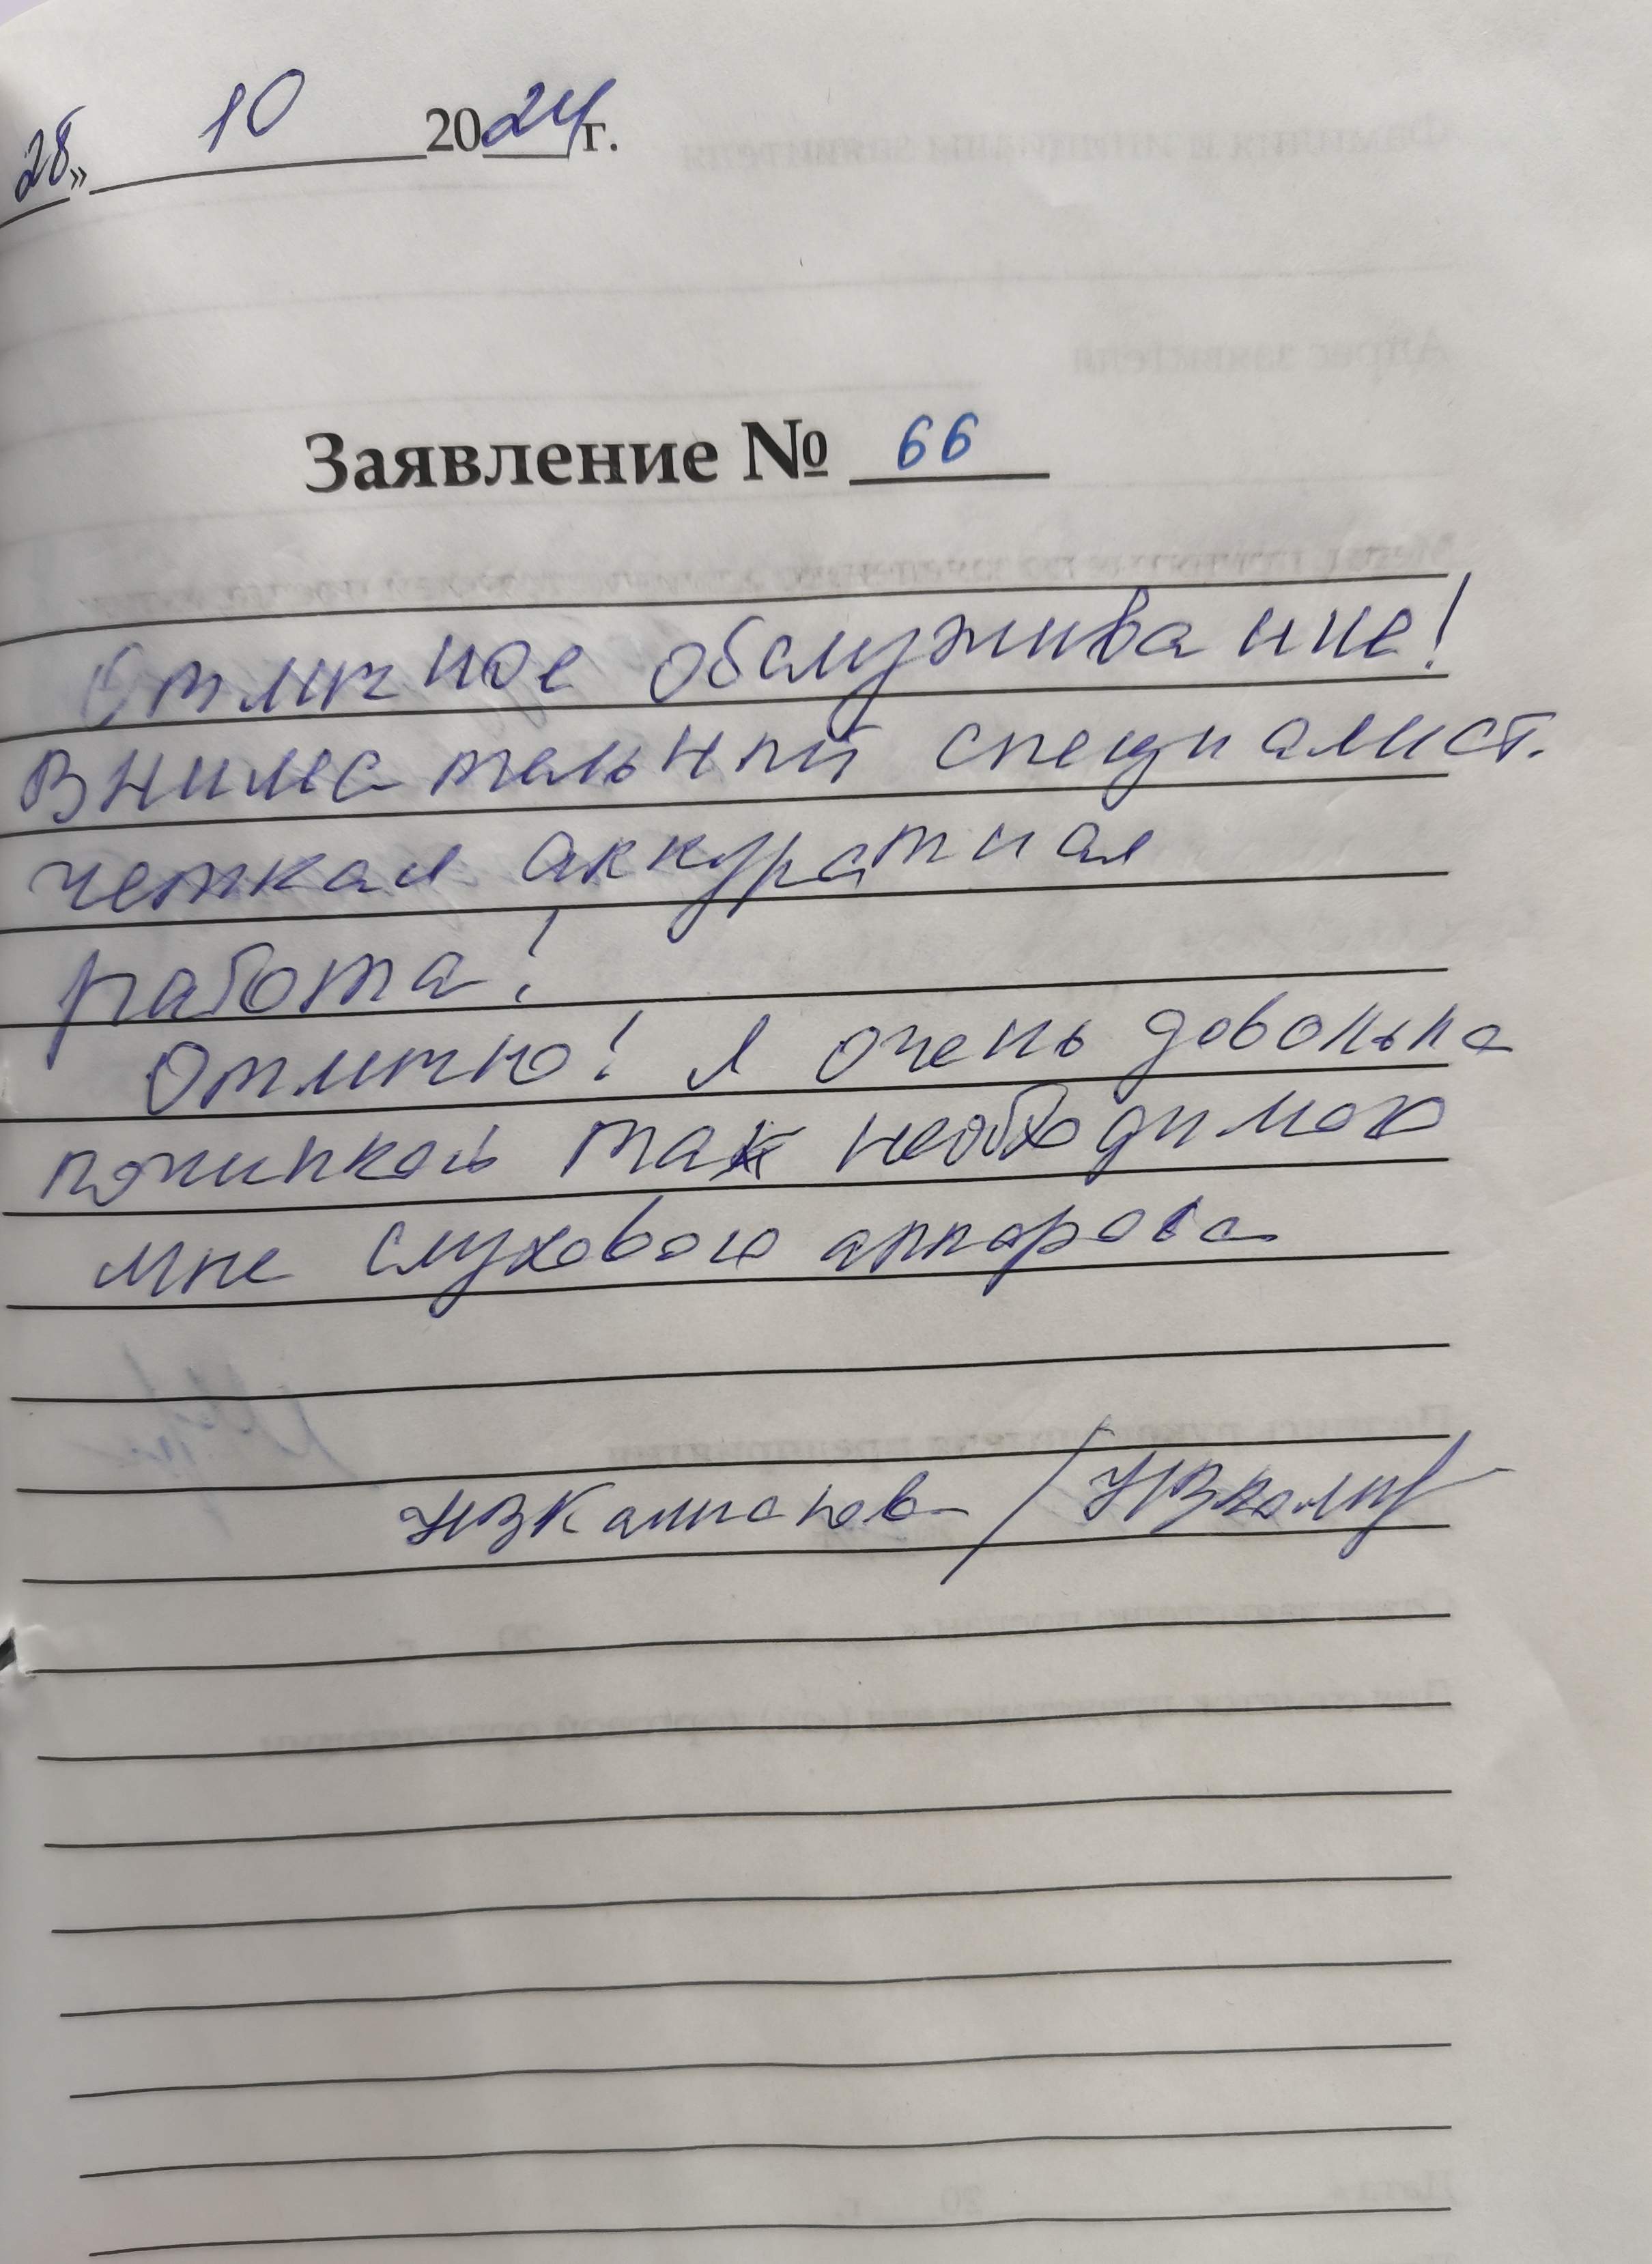 28» 10 2024 г.
Заявление № 66
Отличное обслуживание!
Внимательный специалист.
четкая аккуратная
работа!
Отлично! Я очень довольна
починкой так необходимого
мне слухового аппарата